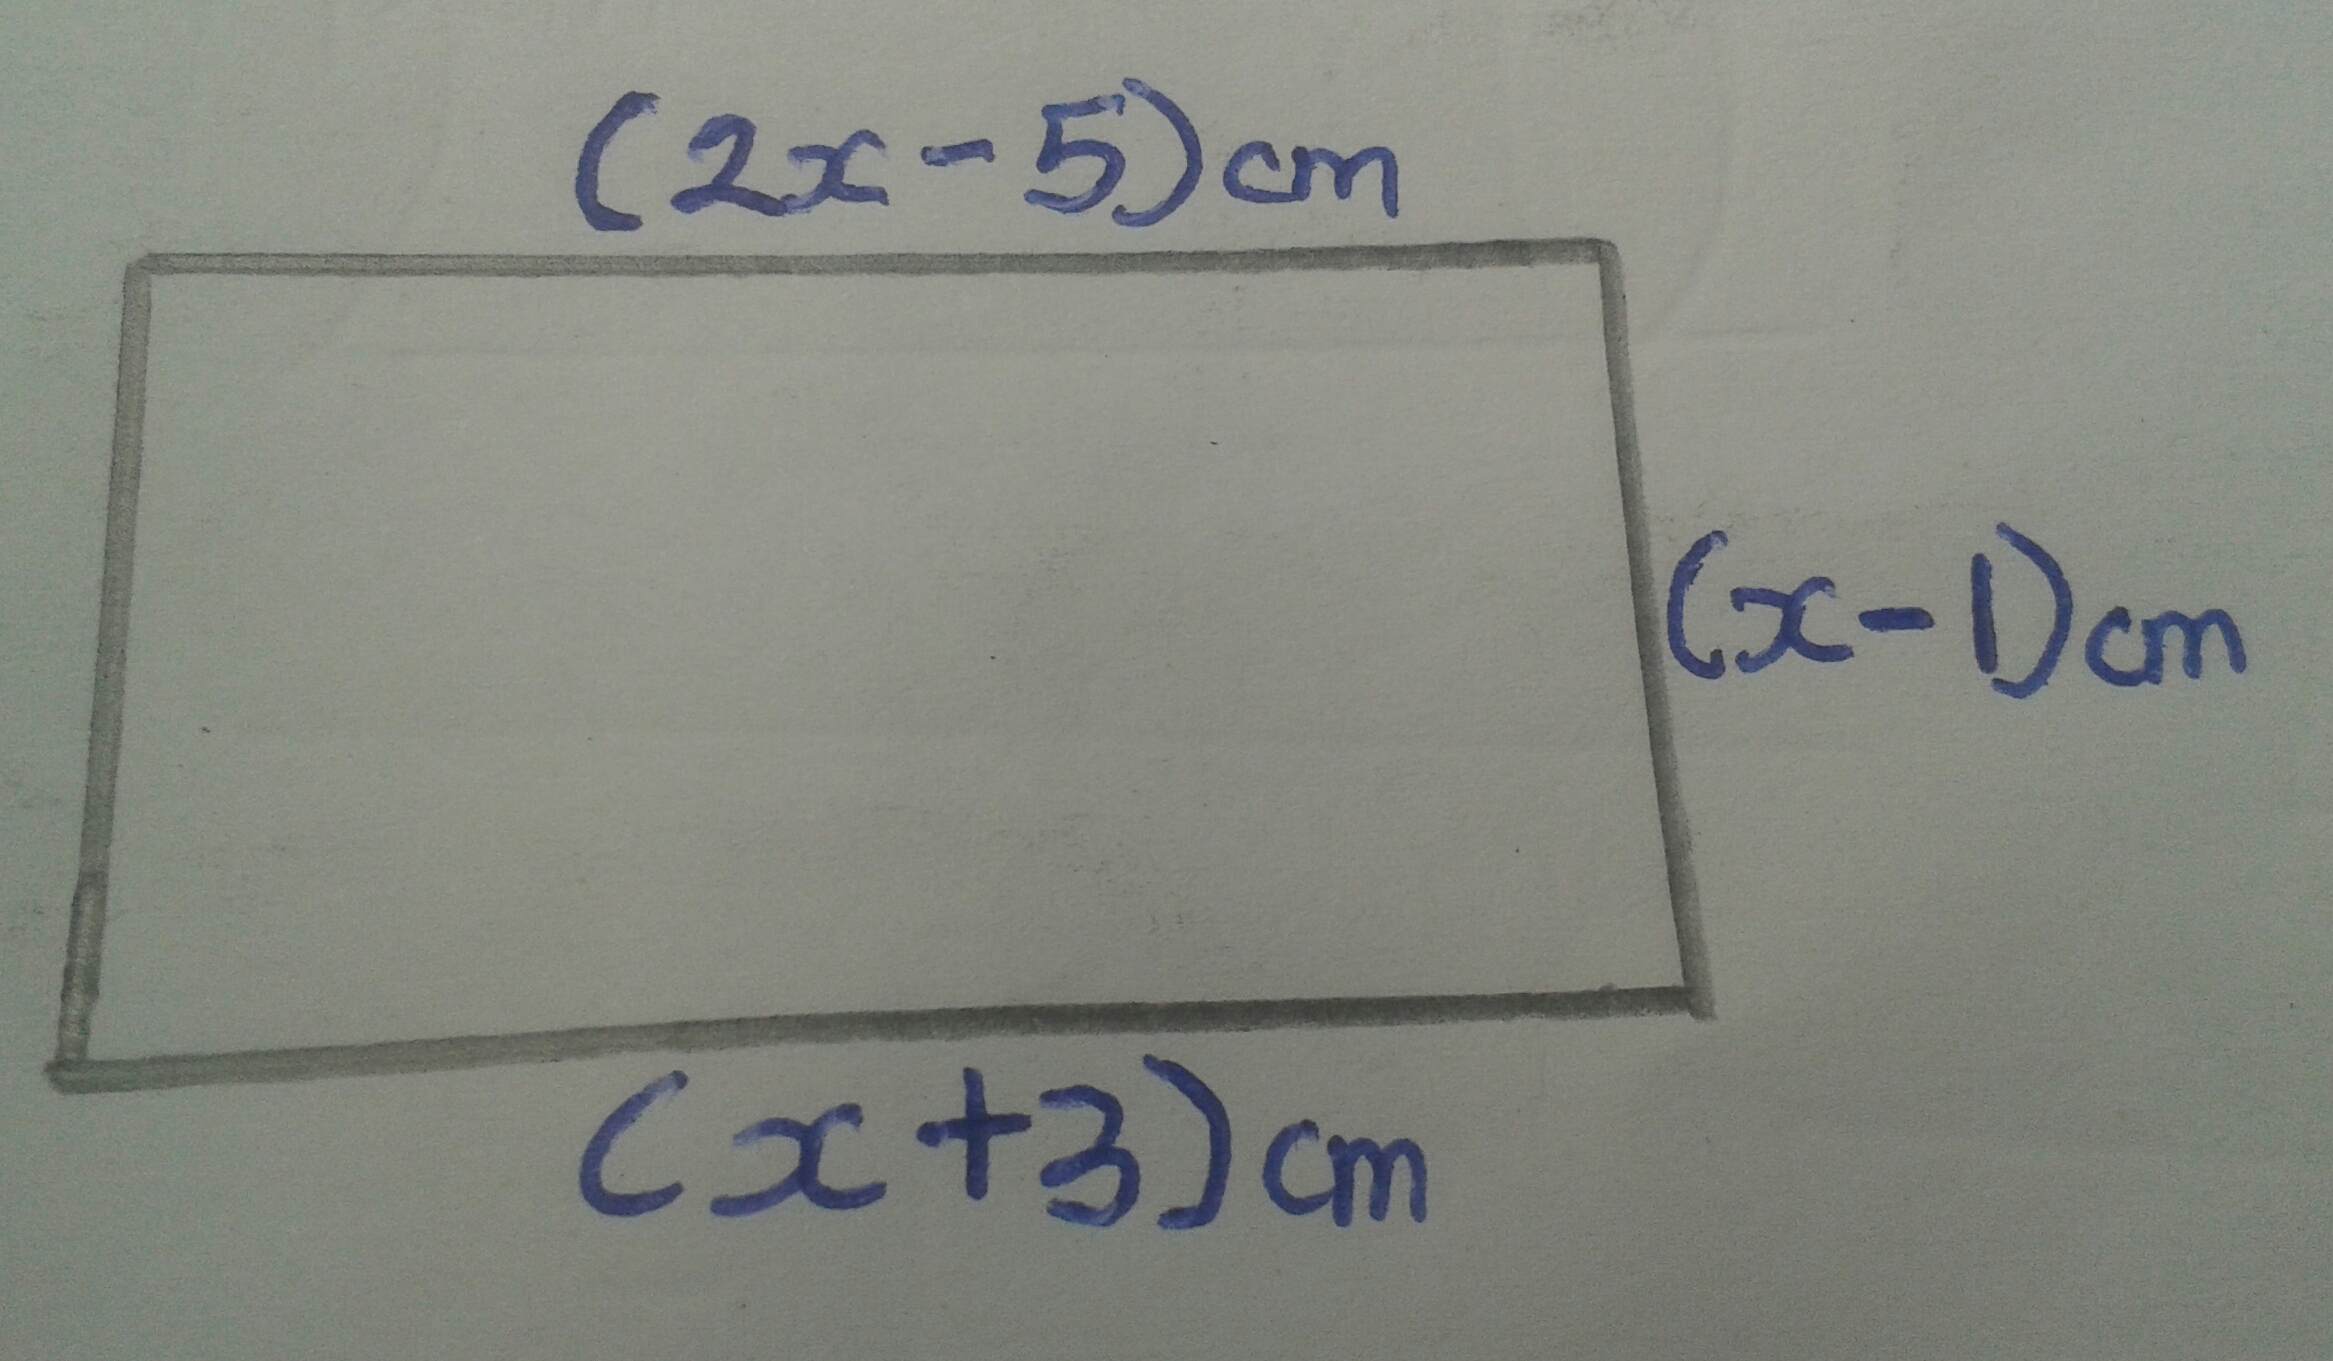 (2x-5)cm
(x-1)cm
(x+3)cm